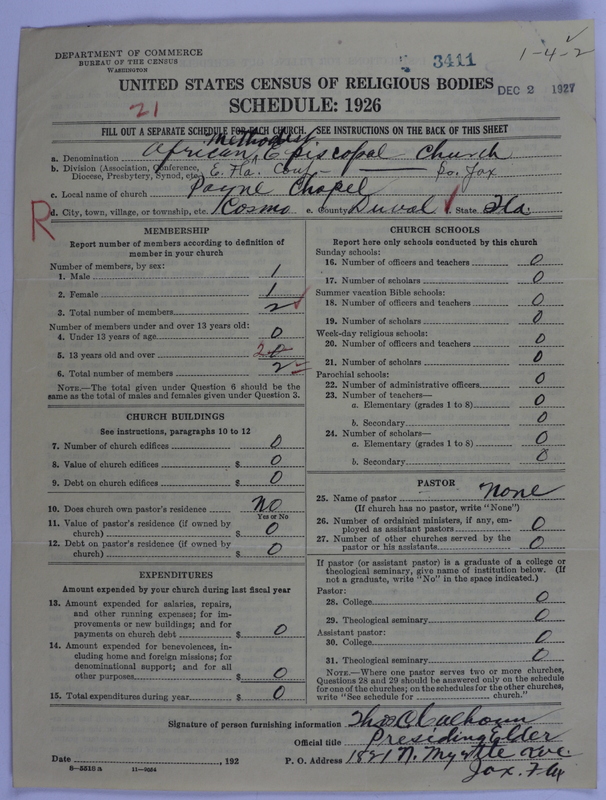 DEPARTMENT OF COMMERCE
BUREAU OF THE CENSUS
WASHINGTON
3411
1-4-2
UNITED STATES CENSUS OF RELIGIOUS BODIES
DEC 2 1927
21
SCHEDULE: 1926
FILL OUT A SEPARATE SCHEDULE FOR EACH CHURCH. SEE INSTRUCTIONS ON THE BACK OF THIS SHEET
Methodist
a. Denomination African Episcopal Church
b. Division (Association, Conference, Diocese, Presbytery, Synod, etc.) E. Fla. Conf — So. Jax
c. Local name of church Payne Chapel
R
d. City, town, village, or township, etc. Cosmo e. County Duval f. State Fla.
MEMBERSHIP
Report number of members according to definition of
member in your church
Number of members, by sex:
1. Male 1
2. Female 1
3. Total number of members 2
Number of members under and over 13 years old:
4. Under 13 years of age 0
5. 13 years old and over 2
6. Total number of members 2
NOTE.—The total given under Question 6 should be the
same as the total of males and females given under Question 3.
CHURCH BUILDINGS
See instructions, paragraphs 10 to 12
7. Number of church edifices 0
8. Value of church edifices $ 0
9. Debt on church edifices $ 0
10. Does church own pastor's residence No
Yes or No
11. Value of pastor's residence (if owned by
church) $ 0
12. Debt on pastor's residence (if owned by
church) $ 0
EXPENDITURES
Amount expended by your church during last fiscal year
13. Amount expended for salaries, repairs,
and other running expenses; for im-
provements or new buildings; and for
payments on church debt $ 0
14. Amount expended for benevolences, in-
cluding home and foreign missions; for
denominational support; and for all
other purposes $ 0
15. Total expenditures during year $ 0
CHURCH SCHOOLS
Report here only schools conducted by this church
Sunday schools:
16. Number of officers and teachers 0
17. Number of scholars 0
Summer vacation Bible schools:
18. Number of officers and teachers 0
19. Number of scholars 0
Week-day religious schools:
20. Number of officers and teachers 0
21. Number of scholars 0
Parochial schools:
22. Number of administrative officers 0
23. Number of teachers—
a. Elementary (grades 1 to 8) 0
b. Secondary 0
24. Number of scholars—
a. Elementary (grades 1 to 8) 0
b. Secondary 0
PASTOR
25. Name of pastor None
(If church has no pastor, write "None")
26. Number of ordained ministers, if any, em-
ployed as assistant pastors 0
27. Number of other churches served by the
pastor or his assistants 0
If pastor (or assistant pastor) is a graduate of a college or
theological seminary, give name of institution below. (If
not a graduate, write "No" in the space indicated.)
Pastor:
28. College 0
29. Theological seminary 0
Assistant pastor:
30. College 0
31. Theological seminary 0
NOTE.—Where one pastor serves two or more churches,
Questions 28 and 29 should be answered only on the schedule
for one of the churches; on the schedules for the other churches,
write "See schedule for church."
Signature of person furnishing information Thos Calhoun
Official title Presiding Elder
Date , 192 P. O. Address 1821 N. Myrtle Ave.
Jax. Fla
8—5518 a 11—9054